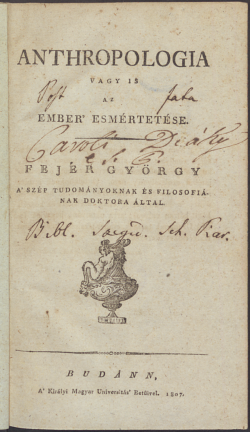 ANTHROPOLOGIA
VAGY IS
Post AZ fata
EMBER' ESMÉRTETÉSE.
Caroli Diáky
FEJÉR GYÖRGY
A' SZÉP TUDOMÁNYOKNAK ÉS FILOSOFIÁ-
NAK DOKTORA ÁLTAL.
Bibl. Szeged. Sch. Piar.
BUDÁNN,
A' Királyi Magyar Universitás' Betűivel. 1807.